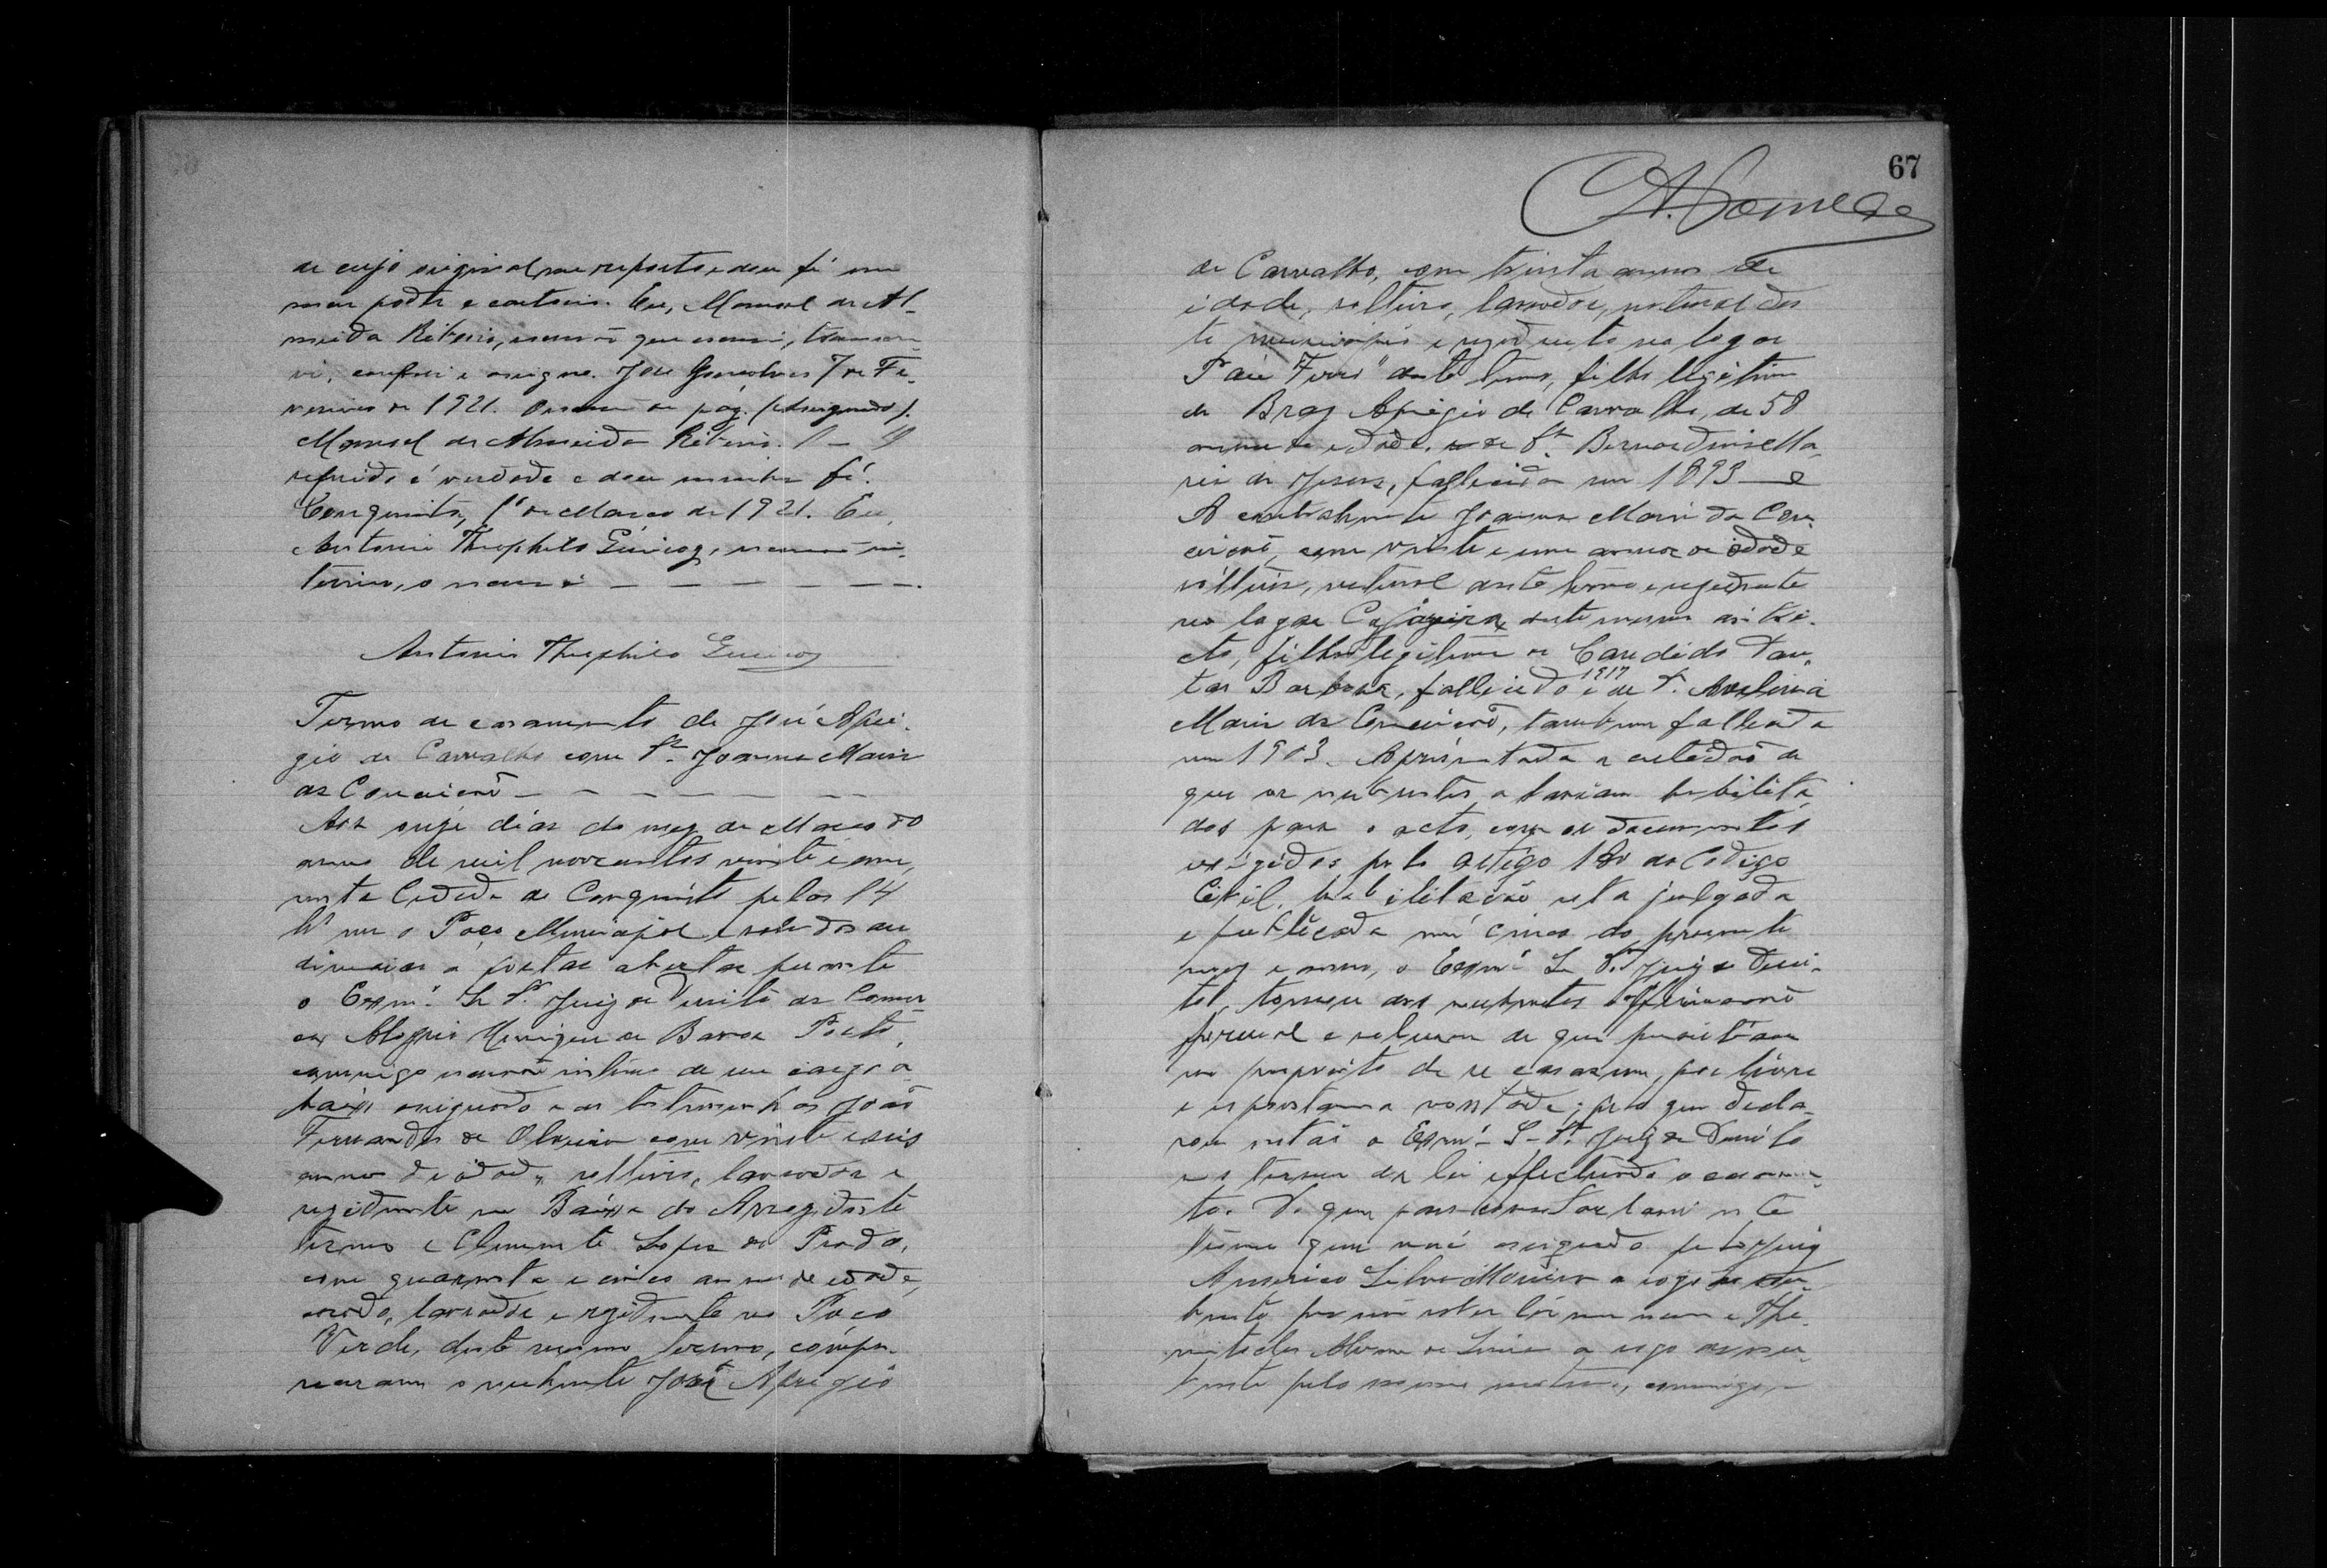 de cujo original me reporto e dou fé em
meu poder e cartorio. Eu, Manoel de Al-
meida Ribeiro, escrivão que escrevi, transcre-
vi, conferi e assigno. José Gonçalves 7 de Fe-
vereiro de 1921. Manoel de Almeida Ribeiro. O
referido é verdade e dou minha fé.
Conquista, 1º de Março de 1921. Eu,
Antonio Theophilo escrivão in-
terino, o escrevi — — — — — —.
Antonio Theophilo
Termo de casamento de José Apri-
gio de Carvalho com D. Joanna Maria
da Conceição — — — — — —
Aos onze dias do mez de Março do
anno de mil novecentos vinte e um,
nesta Cidade de Conquista pelas 14
hs em o Paço Municipal e sala das au
diencias a portas abertas perante
o Exmº Sr Dr. Juiz de Direito da Comar
ca de Barros Porto,
commigo escrivão interino de seu cargo a-
baixo assignado e as testemunhas João
Fernandes de Oliveira com vinte e seis
annos de idade, solteiro, lavrador e
rezidente na Baixa do deste
termo e Clemente Lopes do Prado,
com quarenta e cinco annos de edade,
casado, lavrador e rezidente no Poço
Verde, deste mesmo termo, compa-
receram o nubente José Aprigio
67
de Carvalho, com trinta annos de
idade, solteiro, lavrador, natural des
te municipio e rezidente no logar
"Páu Ferro" deste termo, filho legitimo
de Braz Aprigio de Carvalho, de 58
annos de edade, e de D. Bernardina Ma-
ria de Jesus, fallecida em 1893 — e
A contrahente Joanna Maria da Con-
ceição, com vinte e um annos de edade
solteira, natural deste termo e rezidente
no logar Cajazeira deste mesmo distri-
cto, filha legitima de Candido Dan-
tas Barbosa, fallecido 1917 e de D.
Maria da Conceição, tambem fallecida
em 1903. Aprezentada a certidão de
que os nubentes estavam habilita-
dos para o acto, com os documentos
exigidos pelo artigo 180 do Codigo
Civil, habilitação esta julgada
e publicada em cinco do presente
mez e anno, o Exmº Sr Dr. Juiz de Direi-
to, tomou dos nubentes affirmação
formal e solemne de que persistiam
no proposito de se casarem, por livre
e espontanea vontade; pelo que decla-
rou então o Exmº Sr Dr. Juiz de Direito
nos termos da lei effectuado o casamen-
to. Do que para constar lavrei este
termo que vai assignado pelo Juiz
Americo Silva Moreira a rogo do nu-
bente por não saber ler nem escrever e
de Lima a rogo da nu-
bente pelo mesmo motivo, commigo